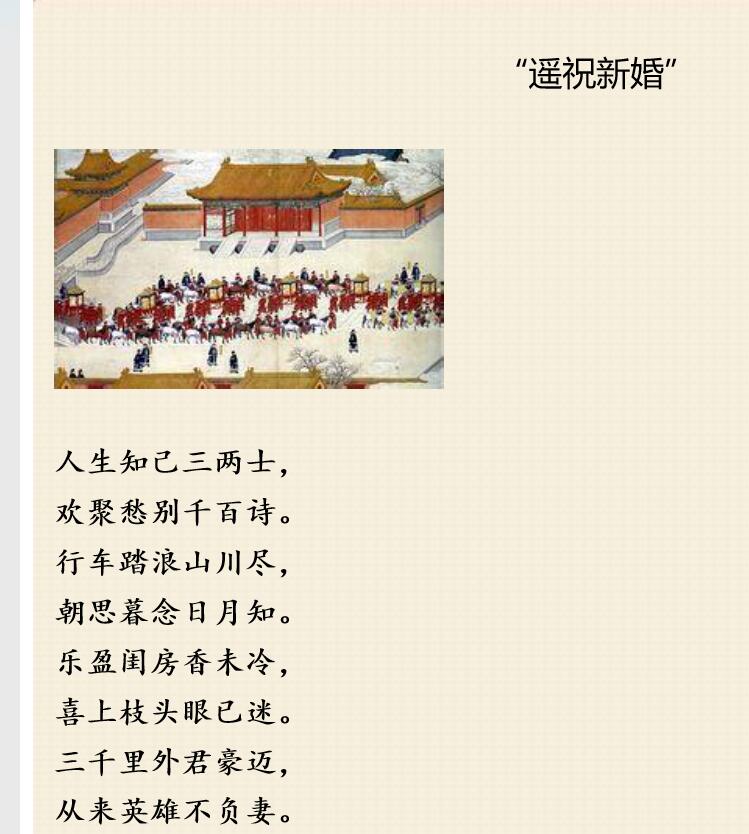 “遥祝新婚”
人生知己三两士，
欢聚愁别千百诗。
行车踏浪山川尽，
朝思暮念日月知。
乐盈闺房香未冷，
喜上枝头眼已迷。
三千里外君豪迈，
从来英雄不负妻。